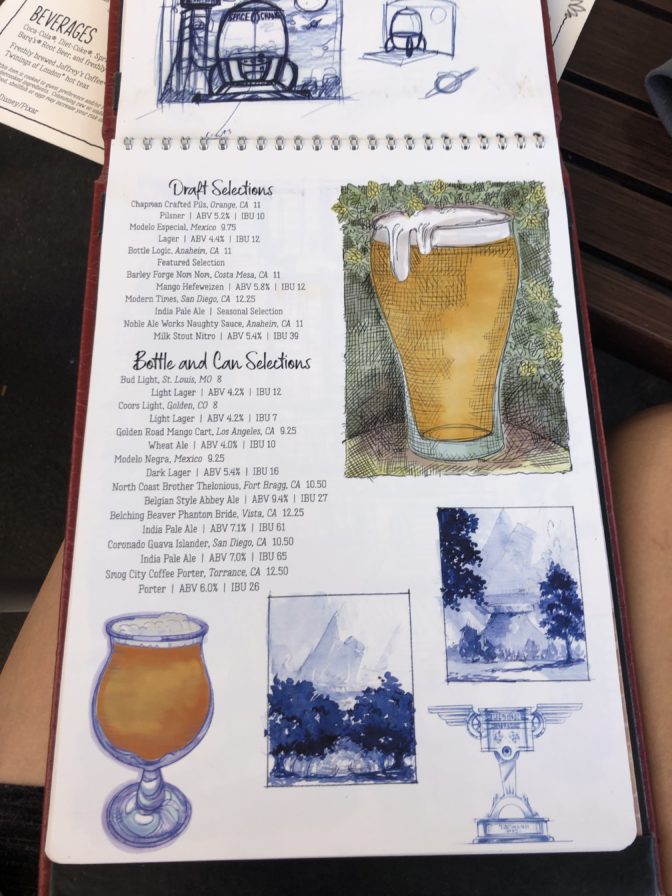 BEVERAGES
Coca-Cola®, Diet-Coke®,
Barq's® Root Beer, and freshly
Freshly brewed Joffrey's Coffee
Twinings of London® hot teas
Disney/Pixar
SPACE
Draft Selections
Chapman Crafted Pils, Orange, CA 11
Pilsner | ABV 5.2% | IBU 10
Modelo Especial, Mexico 9.75
Lager | ABV 4.4% | IBU 12
Bottle Logic, Anaheim, CA 11
Featured Selection
Barley Forge Nom Nom, Costa Mesa, CA 11
Mango Hefeweizen | ABV 5.8% | IBU 12
Modern Times, San Diego, CA 12.25
India Pale Ale | Seasonal Selection
Noble Ale Works Naughty Sauce, Anaheim, CA 11
Milk Stout Nitro | ABV 5.4% | IBU 39
Bottle and Can Selections
Bud Light, St. Louis, MO 8
Light Lager | ABV 4.2% | IBU 12
Coors Light, Golden, CO 8
Light Lager | ABV 4.2% | IBU 7
Golden Road Mango Cart, Los Angeles, CA 9.25
Wheat Ale | ABV 4.0% | IBU 10
Modelo Negra, Mexico 9.25
Dark Lager | ABV 5.4% | IBU 16
North Coast Brother Thelonious, Fort Bragg, CA 10.50
Belgian Style Abbey Ale | ABV 9.4% | IBU 27
Belching Beaver Phantom Bride, Vista, CA 12.25
India Pale Ale | ABV 7.1% | IBU 61
Coronado Guava Islander, San Diego, CA 10.50
India Pale Ale | ABV 7.0% | IBU 65
Smog City Coffee Porter, Torrance, CA 12.50
Porter | ABV 6.0% | IBU 26